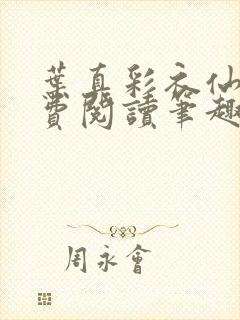 葉真彩衣仙
費閱讀筆趣
周永會